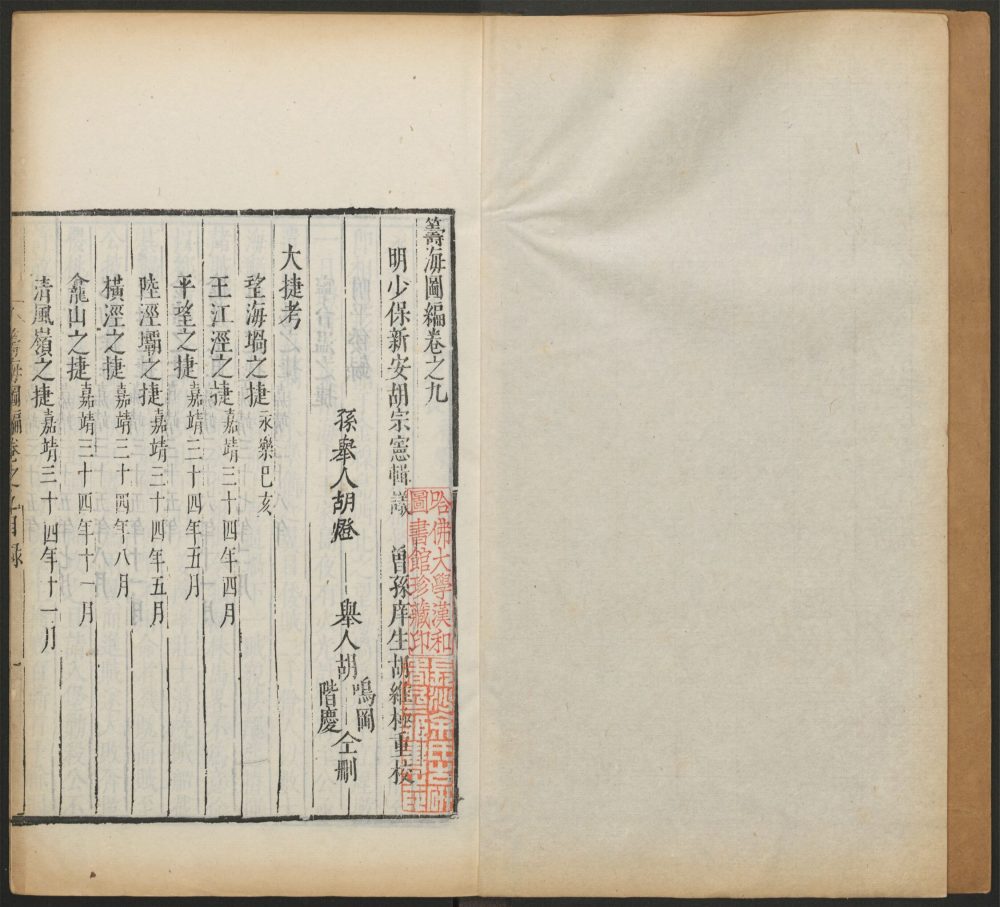 籌海圖編卷之九
明少保新安胡宗憲輯議 曾孫庠生胡維極重校
孫舉人胡燈 舉人胡鳴岡階慶仝刪
大捷考
望海堝之捷永樂巳亥
王江涇之捷嘉靖三十四年四月
平望之捷嘉靖三十四年五月
陸涇壩之捷嘉靖三十四年五月
橫涇之捷嘉靖三十四年八月
龕山之捷嘉靖三十四年十一月
清風嶺之捷嘉靖三十四年十一月
籌海圖編卷之九目錄 一
哈佛大學漢和
圖書館珍藏印
長沙余氏